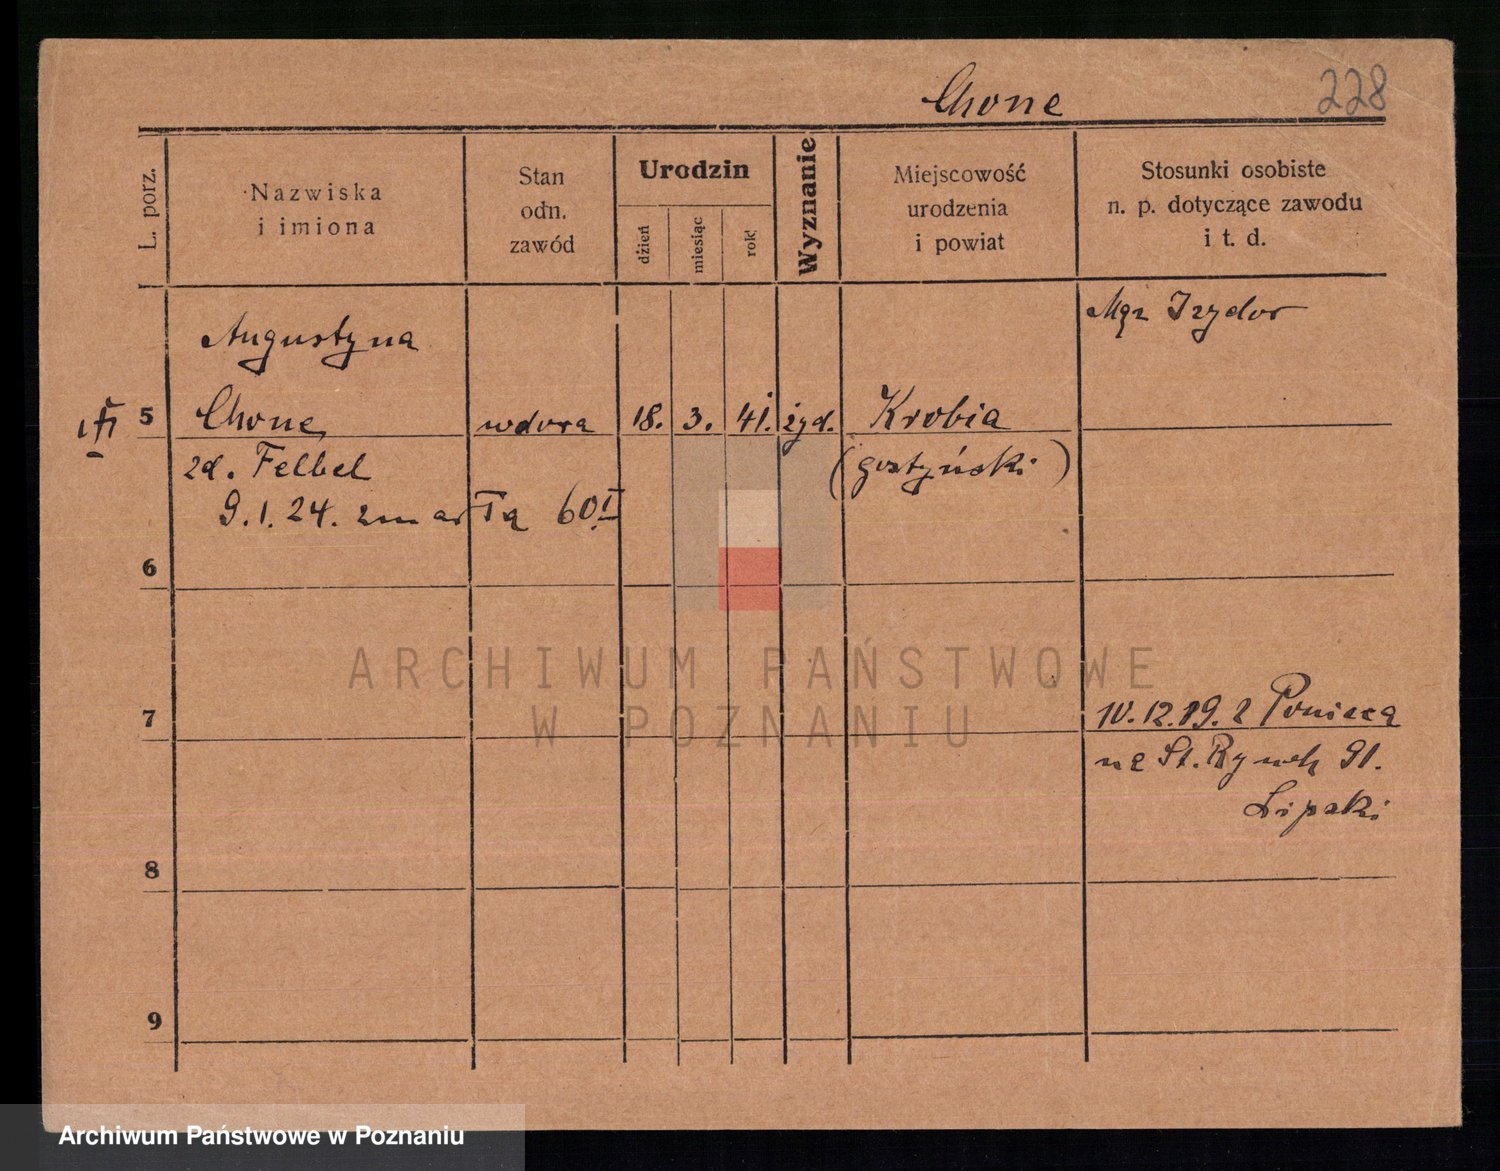 Chone
228
L. porz.
Nazwiska
i imiona
Stan
odn.
zawód
Urodzin
dzień
miesiąc
rok
Wyznanie
Miejscowość
urodzenia
i powiat
Stosunki osobiste
n. p. dotyczące zawodu
i t. d.
Mąż Izydor
Augustyna
5 Chone, wdowa 18. 3. 41. żyd. Krobia
zd. Felbel (gostyński)
9.1.24. zmarła 60
6
7 10.12.19. z Ponieca
na St. Rynek 91.
Lipski
8
9
ARCHIWUM PAŃSTWOWE
W POZNANIU
Archiwum Państwowe w Poznaniu